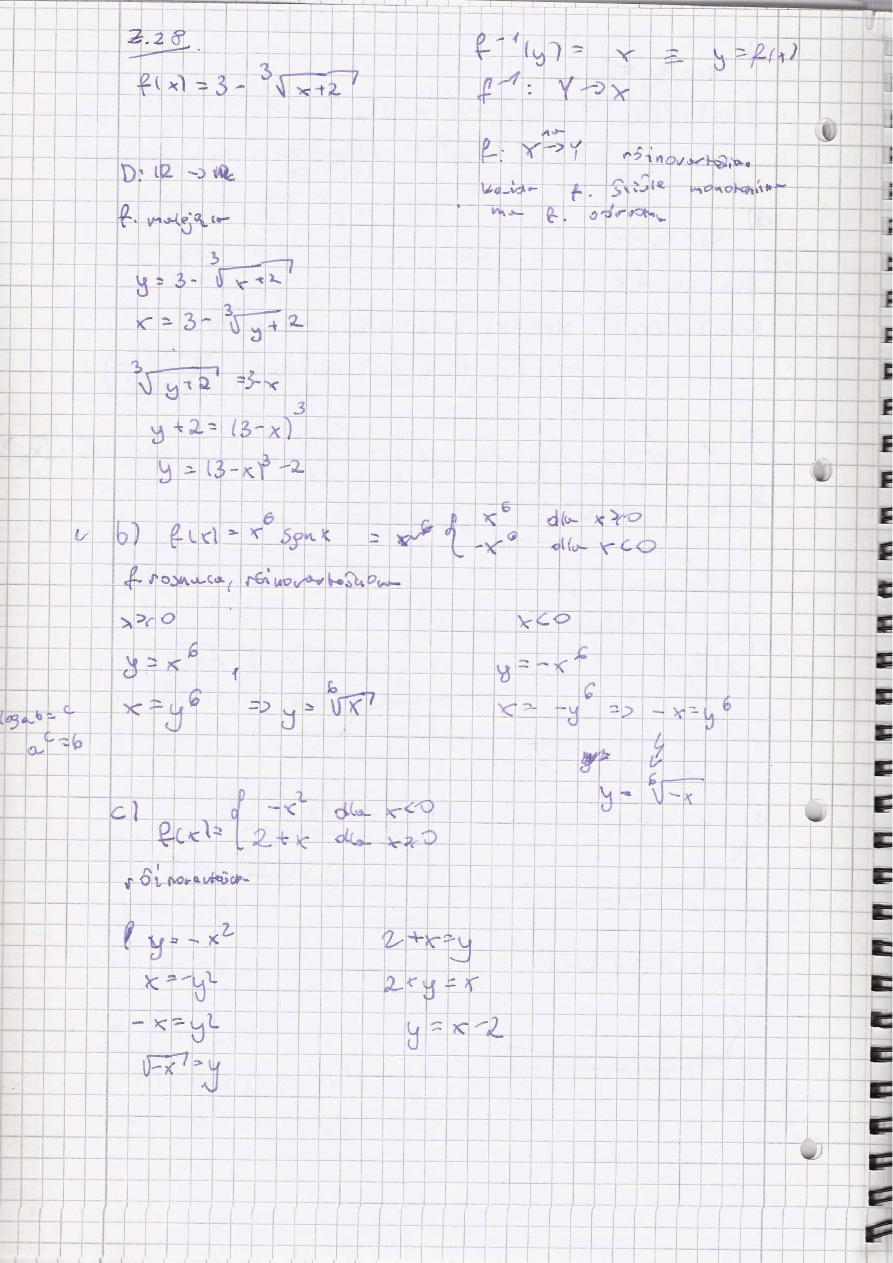 Z.28
f(x) = 3 - ∛(x+2)
f⁻¹(y) = x ≡ y = f(x)
f⁻¹: Y → X
f: X →ⁿᵃ Y różnowartościowa
każda f. ściśle monotoniczna
ma f. odwrotną
D: ℝ → ℝ
f. malejąca
y = 3 - ∛(x+2)
x = 3 - ∛(y+2)
∛(y+2) = 3-x
y+2 = (3-x)³
y = (3-x)³ - 2
b) f(x) = x⁶ sgn x = { x⁶ dla x≥0
-x⁶ dla x<0
f rosnąca, różnowartościowa
x≥0
y = x⁶
x = y⁶ => y = ⁶√x
x<0
y = -x⁶
x = -y⁶ => -x = y⁶
y = ⁶√-x
log a b = c
a^c = b
c) f(x) = { -x² dla x<0
2+x dla x≥0
y = -x²
x = -y²
-x = y²
√-x = y
2+x=y
2+y=x
y = x-2